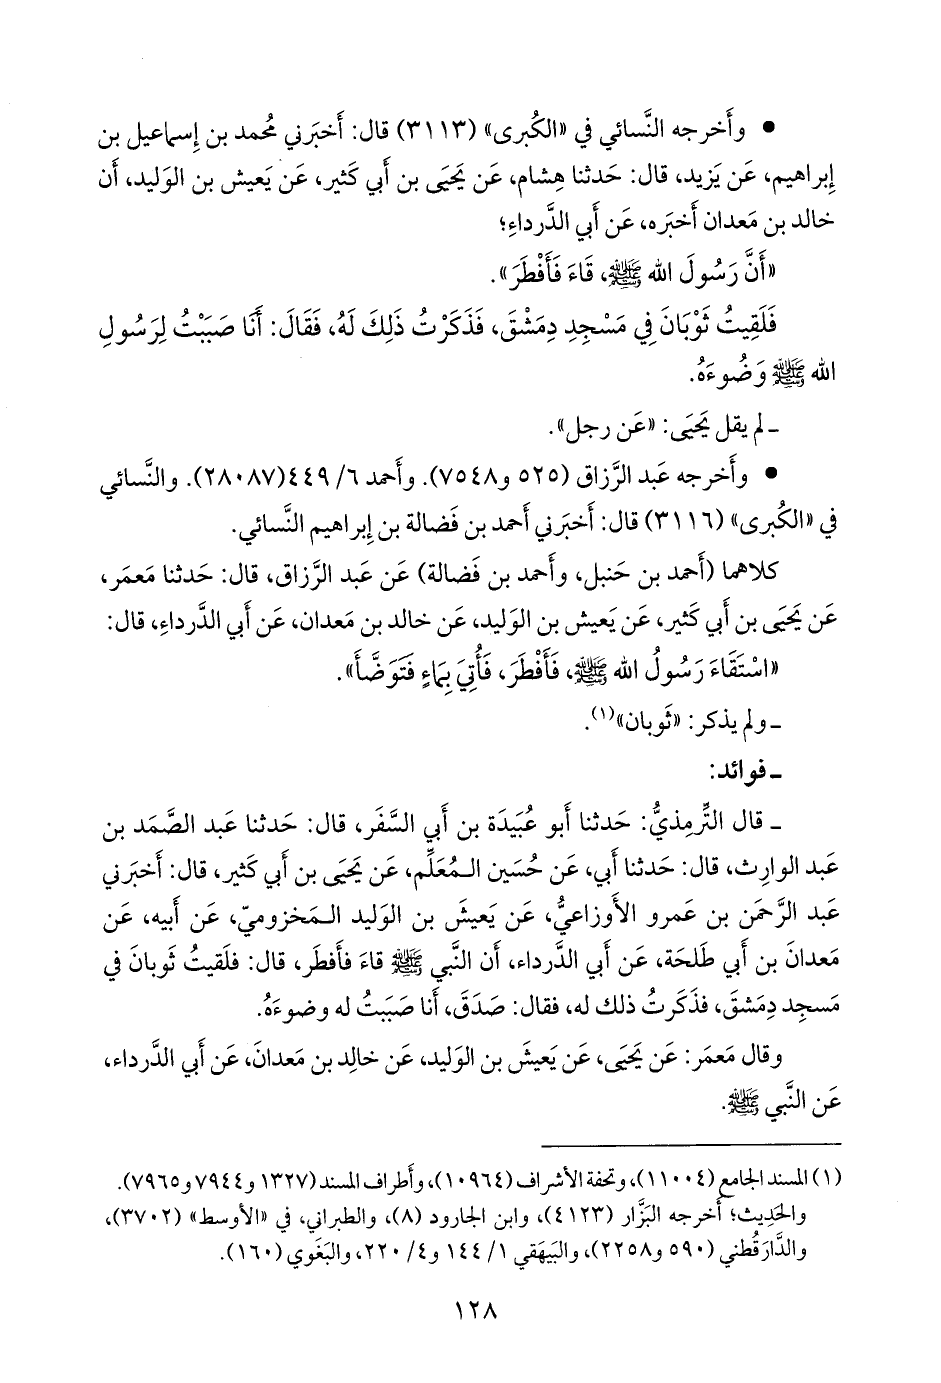 • وأَخرجه النَّسائي في «الكُبرى» (٣١١٣) قال: أَخبَرني مُحمد بن إِسماعيل بن
إِبراهيم، عَن يَزيد، قال: حَدثنا هِشام، عَن يَحيَى بن أَبي كَثير، عَن يَعيش بن الوَليد، أَن
خالد بن مَعدان أَخبَره، عَن أَبي الدَّرداءِ؛
«أَنَّ رَسُولَ الله ﷺ، قَاءَ فَأَفْطَرَ».
فَلَقِيتُ ثَوْبَانَ فِي مَسْجِدِ دِمَشْقَ، فَذَكَرْتُ ذَلِكَ لَهُ، فَقَالَ: أَنَا صَبَبْتُ لِرَسُولِ
الله ﷺ وَضُوءَهُ.
ـ لم يقل يَحيَى: «عَن رجل».
• وأَخرجه عَبد الرَّزاق (٥٢٥ و٧٥٤٨). وأَحمد ٦/ ٤٤٩(٢٨٠٨٧). والنَّسائي
في «الكُبرى» (٣١١٦) قال: أَخبَرني أَحمد بن فَضالة بن إِبراهيم النَّسائي.
كلاهما (أَحمد بن حَنبل، وأَحمد بن فَضالة) عَن عَبد الرَّزاق، قال: حَدثنا مَعمَر،
عَن يَحيَى بن أَبي كَثير، عَن يَعيش بن الوَليد، عَن خالد بن مَعدان، عَن أَبي الدَّرداءِ، قال:
«اسْتَقَاءَ رَسُولُ الله ﷺ، فَأَفْطَرَ، فَأُتِيَ بِمَاءٍ فَتَوَضَّأَ».
ـ ولم يذكر: «ثَوبان»(١).
ـ فوائد:
ـ قال التِّرمِذيُّ: حَدثنا أَبو عُبَيدَة بن أَبي السَّفَر، قال: حَدثنا عَبد الصَّمَد بن
عَبد الوارِث، قال: حَدثنا أَبي، عَن حُسَين الـمُعَلِّم، عَن يَحيَى بن أَبي كَثير، قال: أَخبَرني
عَبد الرَّحمَن بن عَمرو الأَوزاعيُّ، عَن يَعيشَ بن الوَليد الـمَخزوميّ، عَن أَبيه، عَن
مَعدانَ بن أَبي طَلحَة، عَن أَبي الدَّرداء، أَن النَّبي ﷺ قاءَ فأَفطَر، قال: فلَقيتُ ثَوبانَ في
مَسجِد دِمَشقَ، فذَكَرتُ ذلك له، فقال: صَدَقَ، أَنا صَبَبتُ له وضوءَهُ.
وقال مَعمَر: عَن يَحيَى، عَن يَعيشَ بن الوَليد، عَن خالِد بن مَعدانَ، عَن أَبي الدَّرداء،
عَن النَّبي ﷺ.
(١) المسند الجامع (١١٠٠٤)، وتحفة الأشراف (١٠٩٦٤)، وأطراف المسند (١٣٢٧ و٧٩٤٤ و٧٩٦٥).
والحَدِيث؛ أَخرجه البَزَّار (٤١٢٣)، وابن الجارود (٨)، والطبراني، في «الأَوسط» (٣٧٠٢)،
والدَّارَقُطني (٥٩٠ و٢٢٥٨)، والبَيهَقي ١/ ١٤٤ و٤/ ٢٢٠، والبَغَوي (١٦٠).
١٢٨